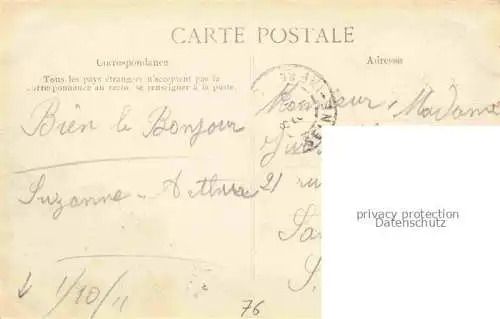 CARTE POSTALE
Correspondance
Tous les pays étrangers n'acceptent pas la
correspondance au recto, se renseigner à la poste.
Adresse
Bien le Bonjour
Suzanne - Arthur
1/10/11
Monsieur, Madame
21 ru
76
privacy protection
Datenschutz